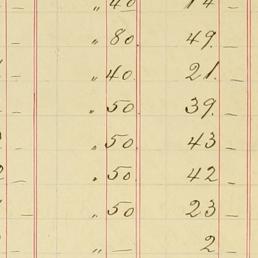 " 40 14
" 80. 49. —
" 40. 21. —
" 50 39. —
" 50. 43 —
" 50. 42
" 50 23 —
" — 2 —